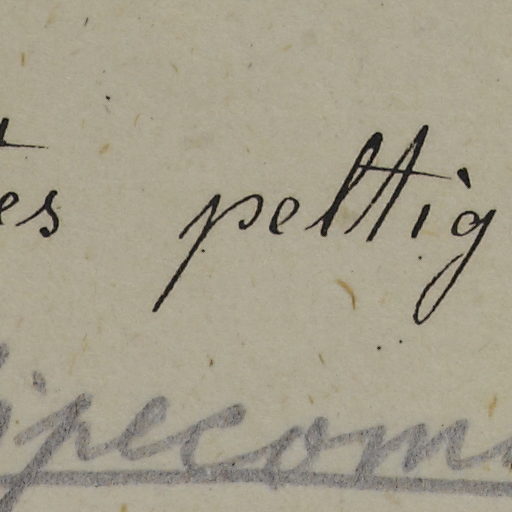 tes peltig
ipecom